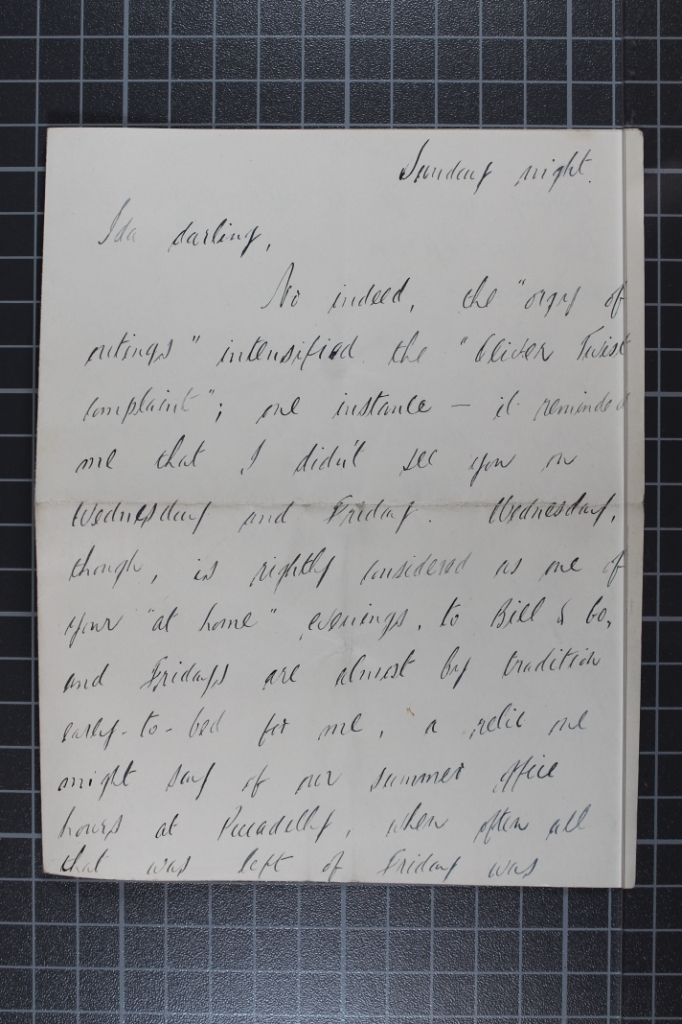 Sunday night.
Ida darling,
No indeed, the "orgy of
outings" intensified the "Oliver Twist
complaint"; one instance — it reminded
me that I didn't see you on
Wednesday and Friday. Wednesday,
though, is rightly considered as one of
your "at home" evenings, to Bill & Co,
and Fridays are almost by tradition
early-to-bed for me, a relic one
might say of our summer office
hours at Piccadilly, when often all
that was left of Friday was